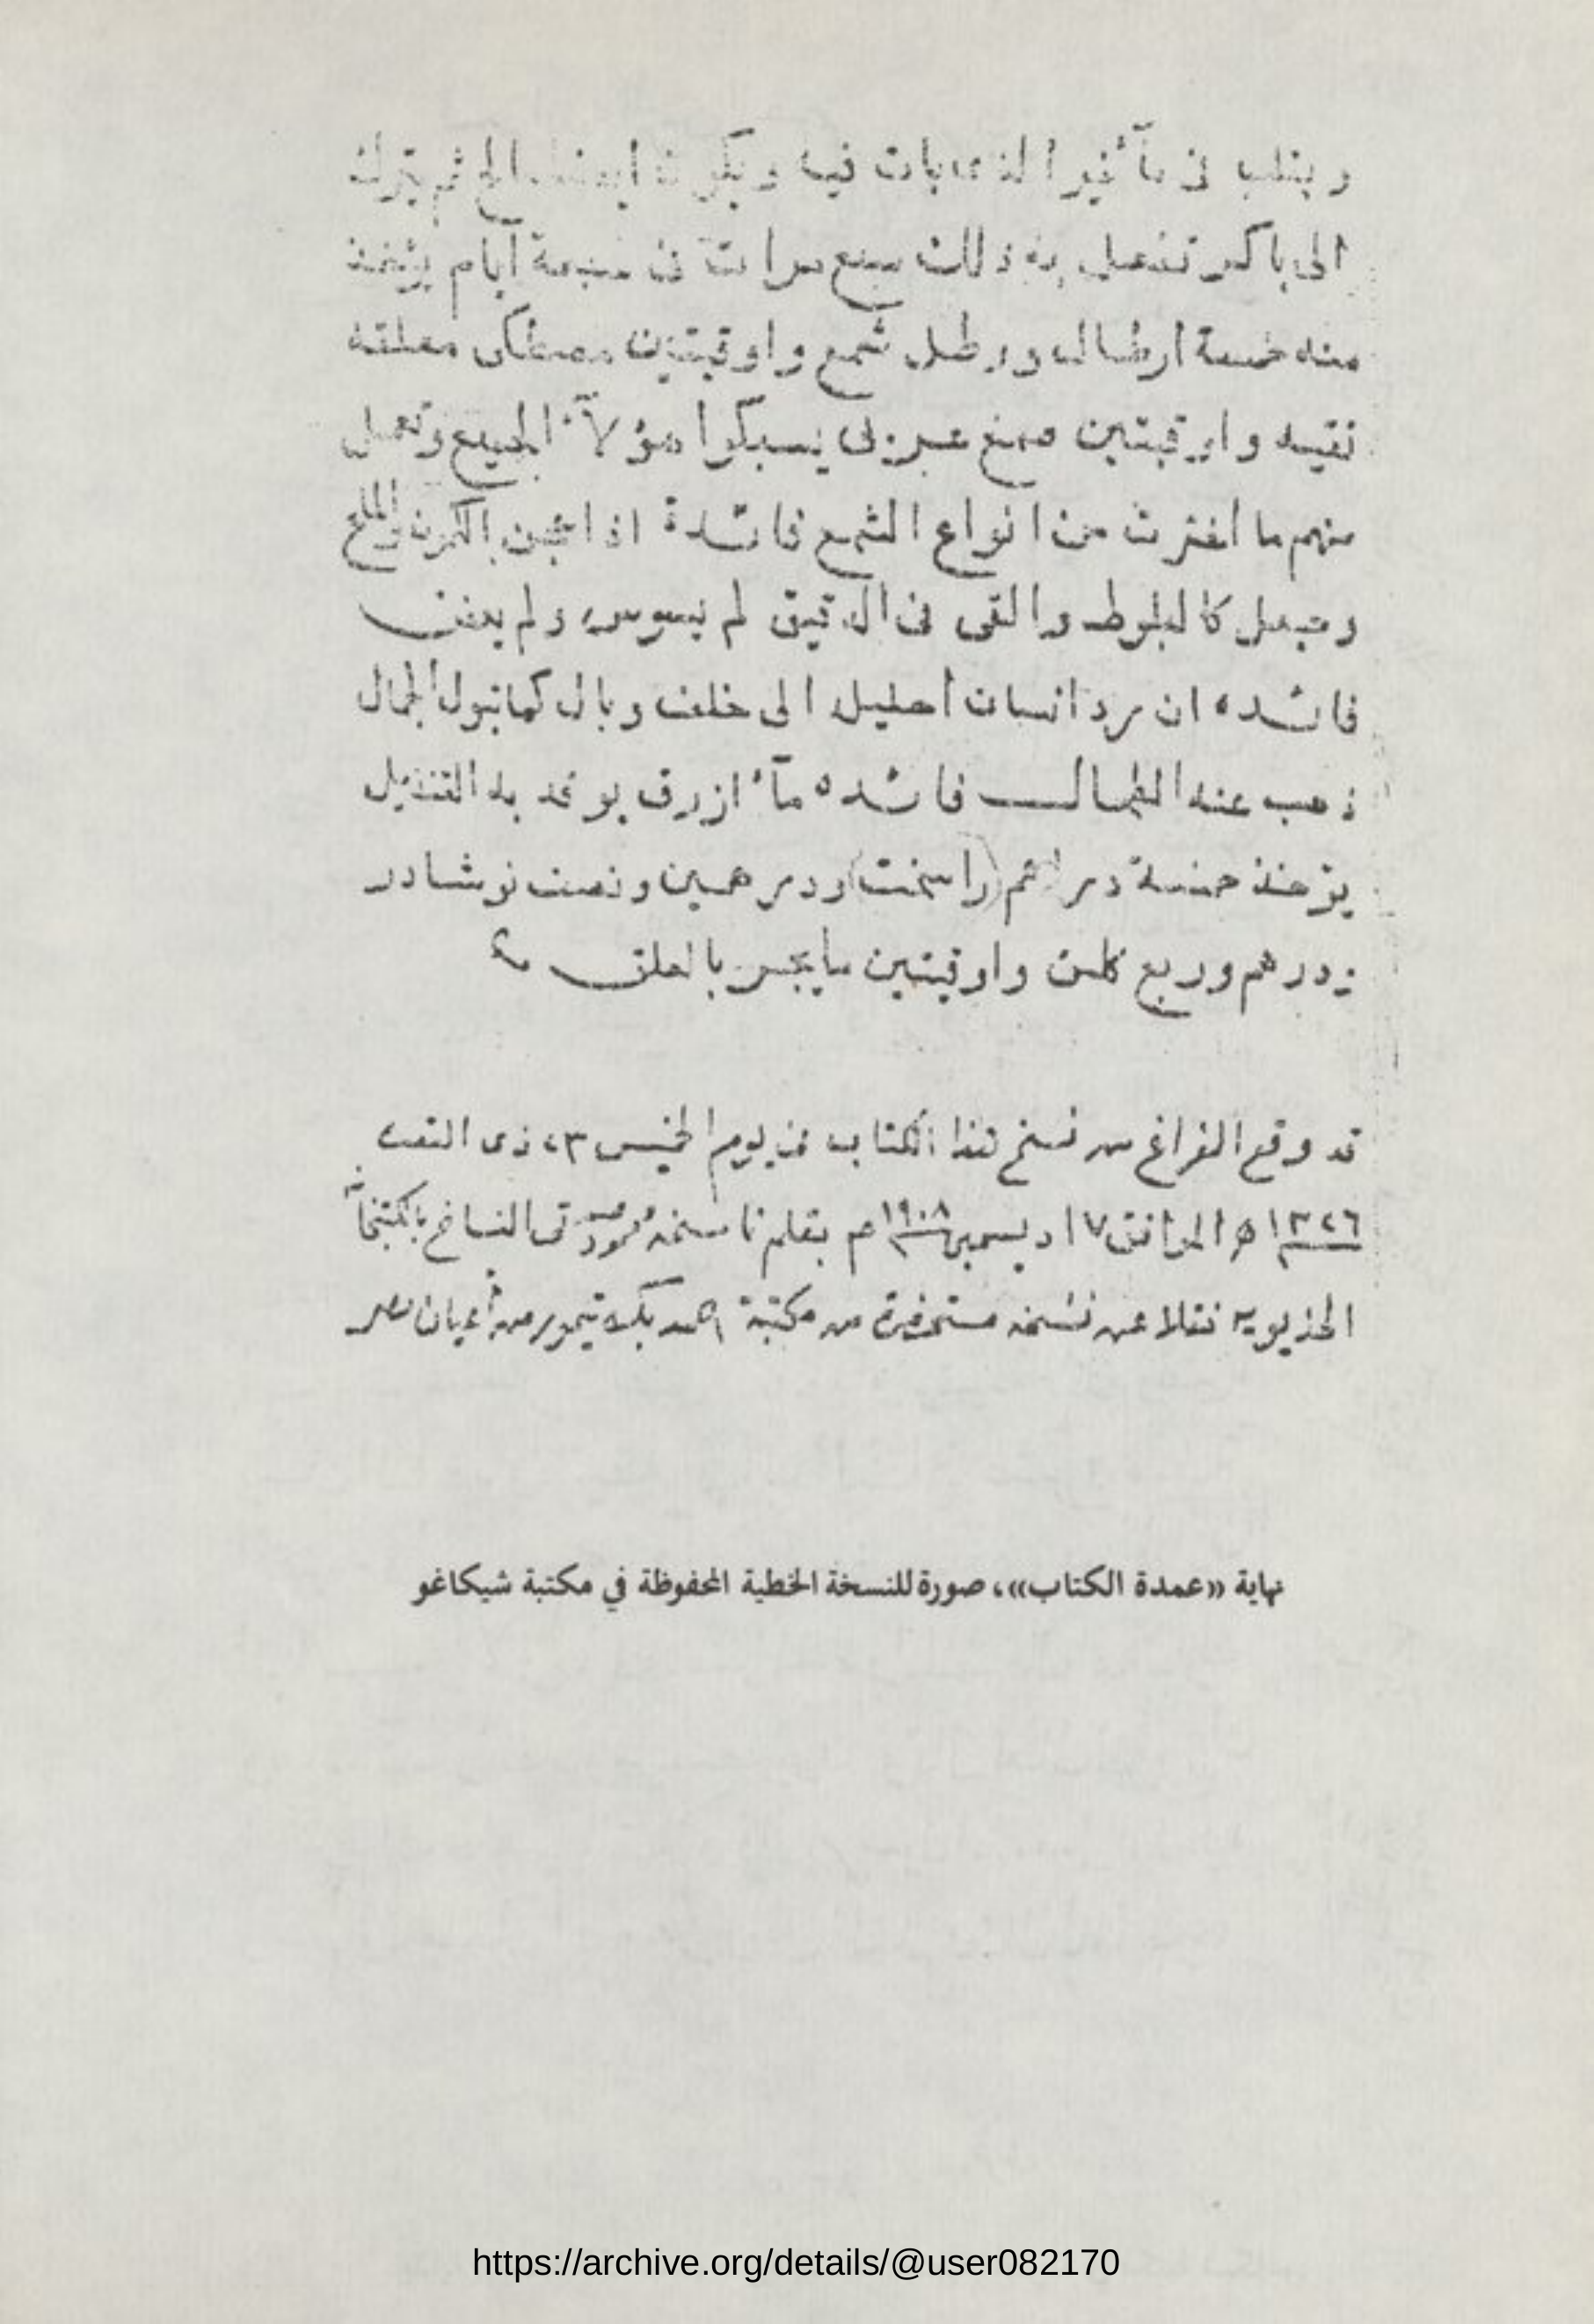 ويقلب في مآ غير الذي بات فيه ويكون ثم يترك
الى باكر تفعل به ذلك سبع مرات في سبعة أيام يؤخذ
منه خمسة ارطال ورطل شمع واوقيتين مصطكى معلقه
نقيه واوقيتين صمغ عربى يسبكوا هؤلآء الجميع وتعمل
منهم ما اخترت من انواع الشمع فائدة اذا عجن الكمون والملح
وجعل كالبلوط والقى فى الدقيق لم يسوس ولم يعفن
فائده ان رد انسان احليله الى خلف وبال كما تبول الجمال
ذهب عنه الطحال فائده مآء ازرق يوقد به القنديل
يؤخذ خمسة دراهم (راسخت) ودرهمين ونصف نوشادر
ودرهم وربع كلس واوقيتين مايجر بالعلق
قد وقع الفراغ من نسخ هذا الكتاب فى يوم الخميس ٢٣ ذى القعدة
١٣٢٦ هـ الموافق ١٧ ديسمبر ١٩٠٨ م بقلم ناسخه محمود النساخ بالكتبخانه
الخديويه نقلا عن نسخه مستحضرة من مكتبة احمد بك تيمور من أعيان مصر
نهاية «عمدة الكتاب»، صورة للنسخة الخطية المحفوظة في مكتبة شيكاغو
https://archive.org/details/@user082170